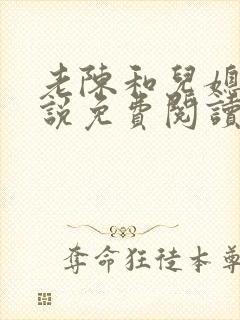 老陳和兒媳
說免費閱讀
奪命狂徒本尊